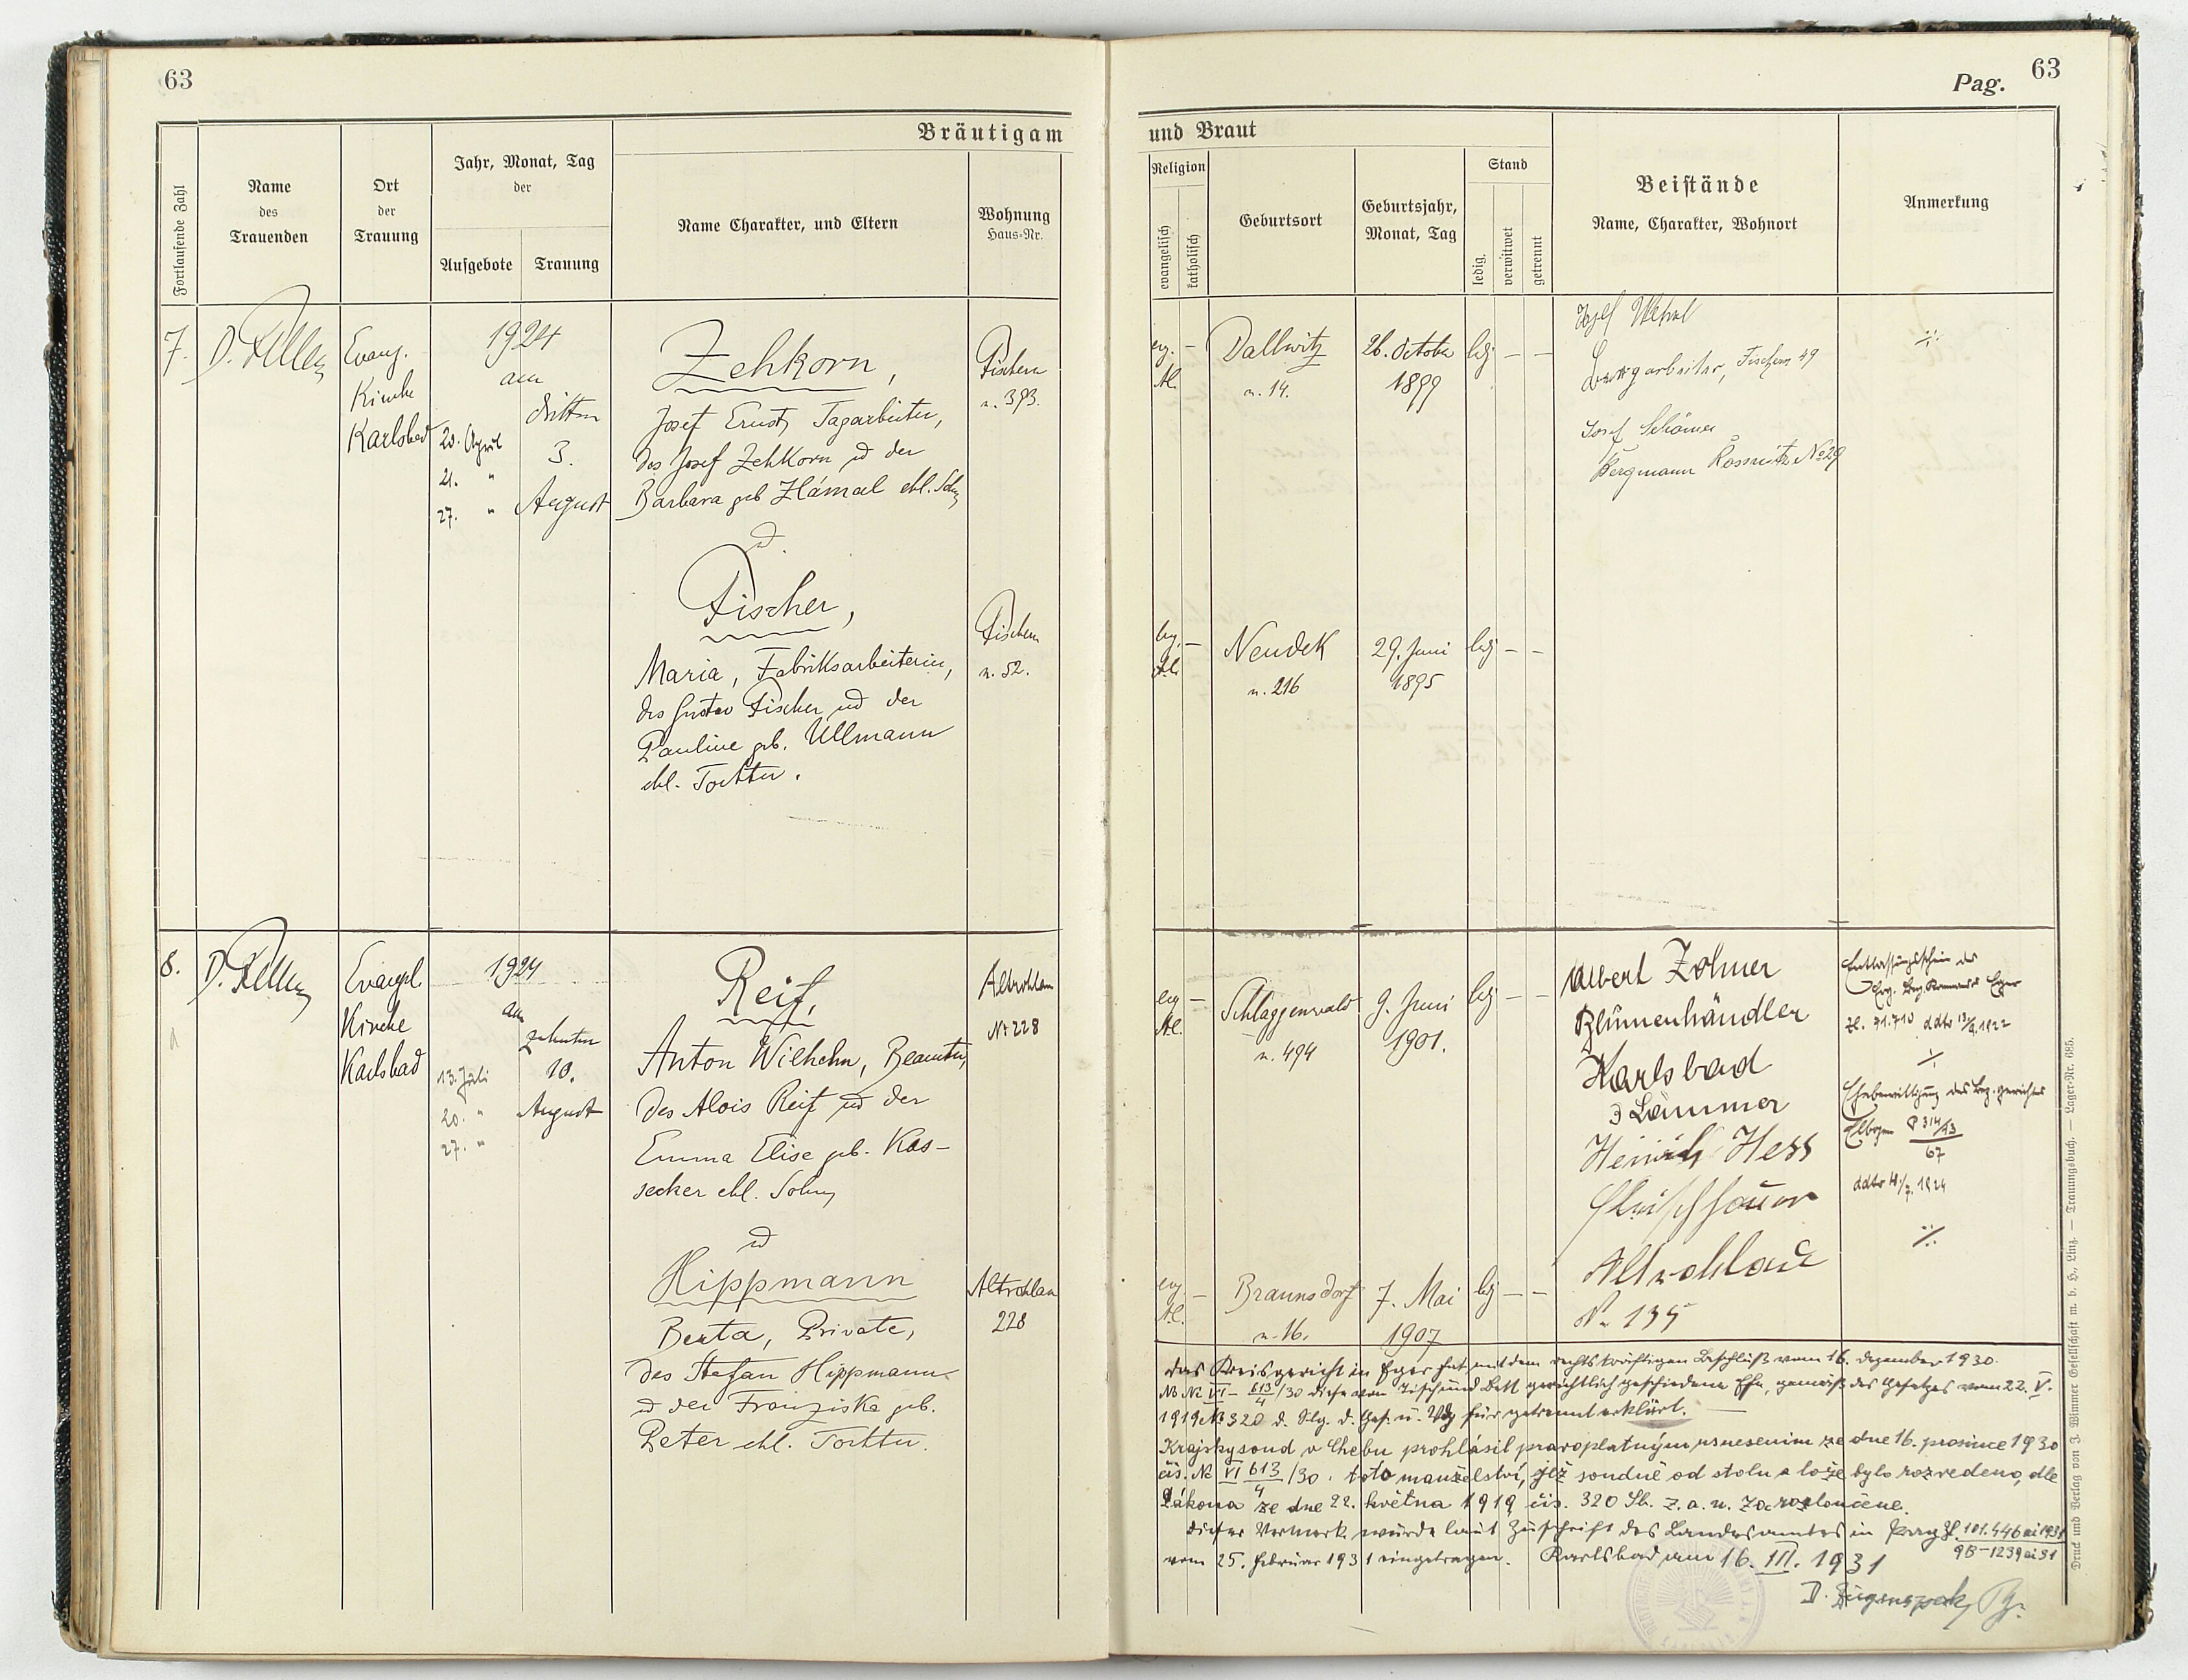 63
Pag. 63
Bräutigam und Braut
Fortlaufende Zahl
Name
des
Trauenden
Ort
der
Trauung
Jahr, Monat, Tag
der
Aufgebote
Trauung
Name Charakter, und Eltern
Wohnung
Haus-Nr.
Religion
evangelisch
katholisch
Geburtsort
Geburtsjahr,
Monat, Tag
Stand
ledig.
verwitwet
getrennt
Beistände
Name, Charakter, Wohnort
Anmerkung
7.
Evang.
Kirche
Karlsbad
1924
am
20. April
21. "
27. "
dritten
3.
August
Zehkorn,
Josef Ernst, Tagarbeiter,
des Josef Zehkorn ud der
Barbara geb Hámal ehl. Sohn
ud
Fischer,
Maria, Fabriksarbeiterin,
des Gustav Fischer ud der
Pauline geb. Ullmann
ehl. Tochter.
Fischern
n. 393.
Fischern
n. 52.
ev.
Dallwitz
n. 14.
26. October
1899
led — —
ev.
Neudek
n. 216
29. Juni
1895
led — —
Fischern 49
Josef
Bergmann No 29
8.
Evangel
Kirche
Karlsbad
1924
am
13. Juli
20. "
27. "
zehnten
10.
August
Reif,
Anton Wilhelm, Beamter,
des Alois Reif ud der
Emma Elise geb. Kos-
secker ehl. Sohn
ud
Hippmann
Berta, Private,
des Stefan Hippmann
ud der Franziska geb.
Peter ehl. Tochter.
Altrohlau
Nr 228
Altrohlau
228
ev
Schlaggenwald
n. 494
9. Juni
1901.
led — —
ev
Braunsdorf
n. 16.
7. Mai
1907
led — —
Albert Zohner
Blumenhändler
Karlsbad
Heinrich Hess
Fleischhauer
Altrohlau
Nr. 135
Entlassungsschein des
Erg. Bez. Eger
Zl. 71.710
Ehebewilligung des Bez. gerichtes
Elbogen
67
1924
das Kreisgericht in Eger hat mit dem rechtskräftigen Beschluß vom 16. Dezember 1930.
VI – 613/4 /30 diese von Tisch und Bett gerichtlich geschiedene Ehe, gemäß des Gesetzes vom 22. V.
1919 No 320 d. Slg. d. Ges. u. Vdg für getrennt erklärt.
Krajský soud v Chebu prohlásil pravoplatným usnesením ze dne 16. prosince 1930
čís. Nc VI 613/4 /30. toto manželství, jež soudně od stolu a lože bylo rozvedeno, dle
Zákona ze dne 22. května 1919 čís. 320 Sb. z. a. n. za rozloučené.
Dieser Vermerk wurde laut Zuschrift des Landesamtes in Prag Zl. 101.446 ai 1931
9B–1239 ai 31
vom 25. Februar 1931 eingetragen. Karlsbad am 16. III. 1931
Druck und Verlag von J. Wimmer Gesellschaft m. b. H., Linz. — Trauungsbuch. — Lager-Nr. 685.